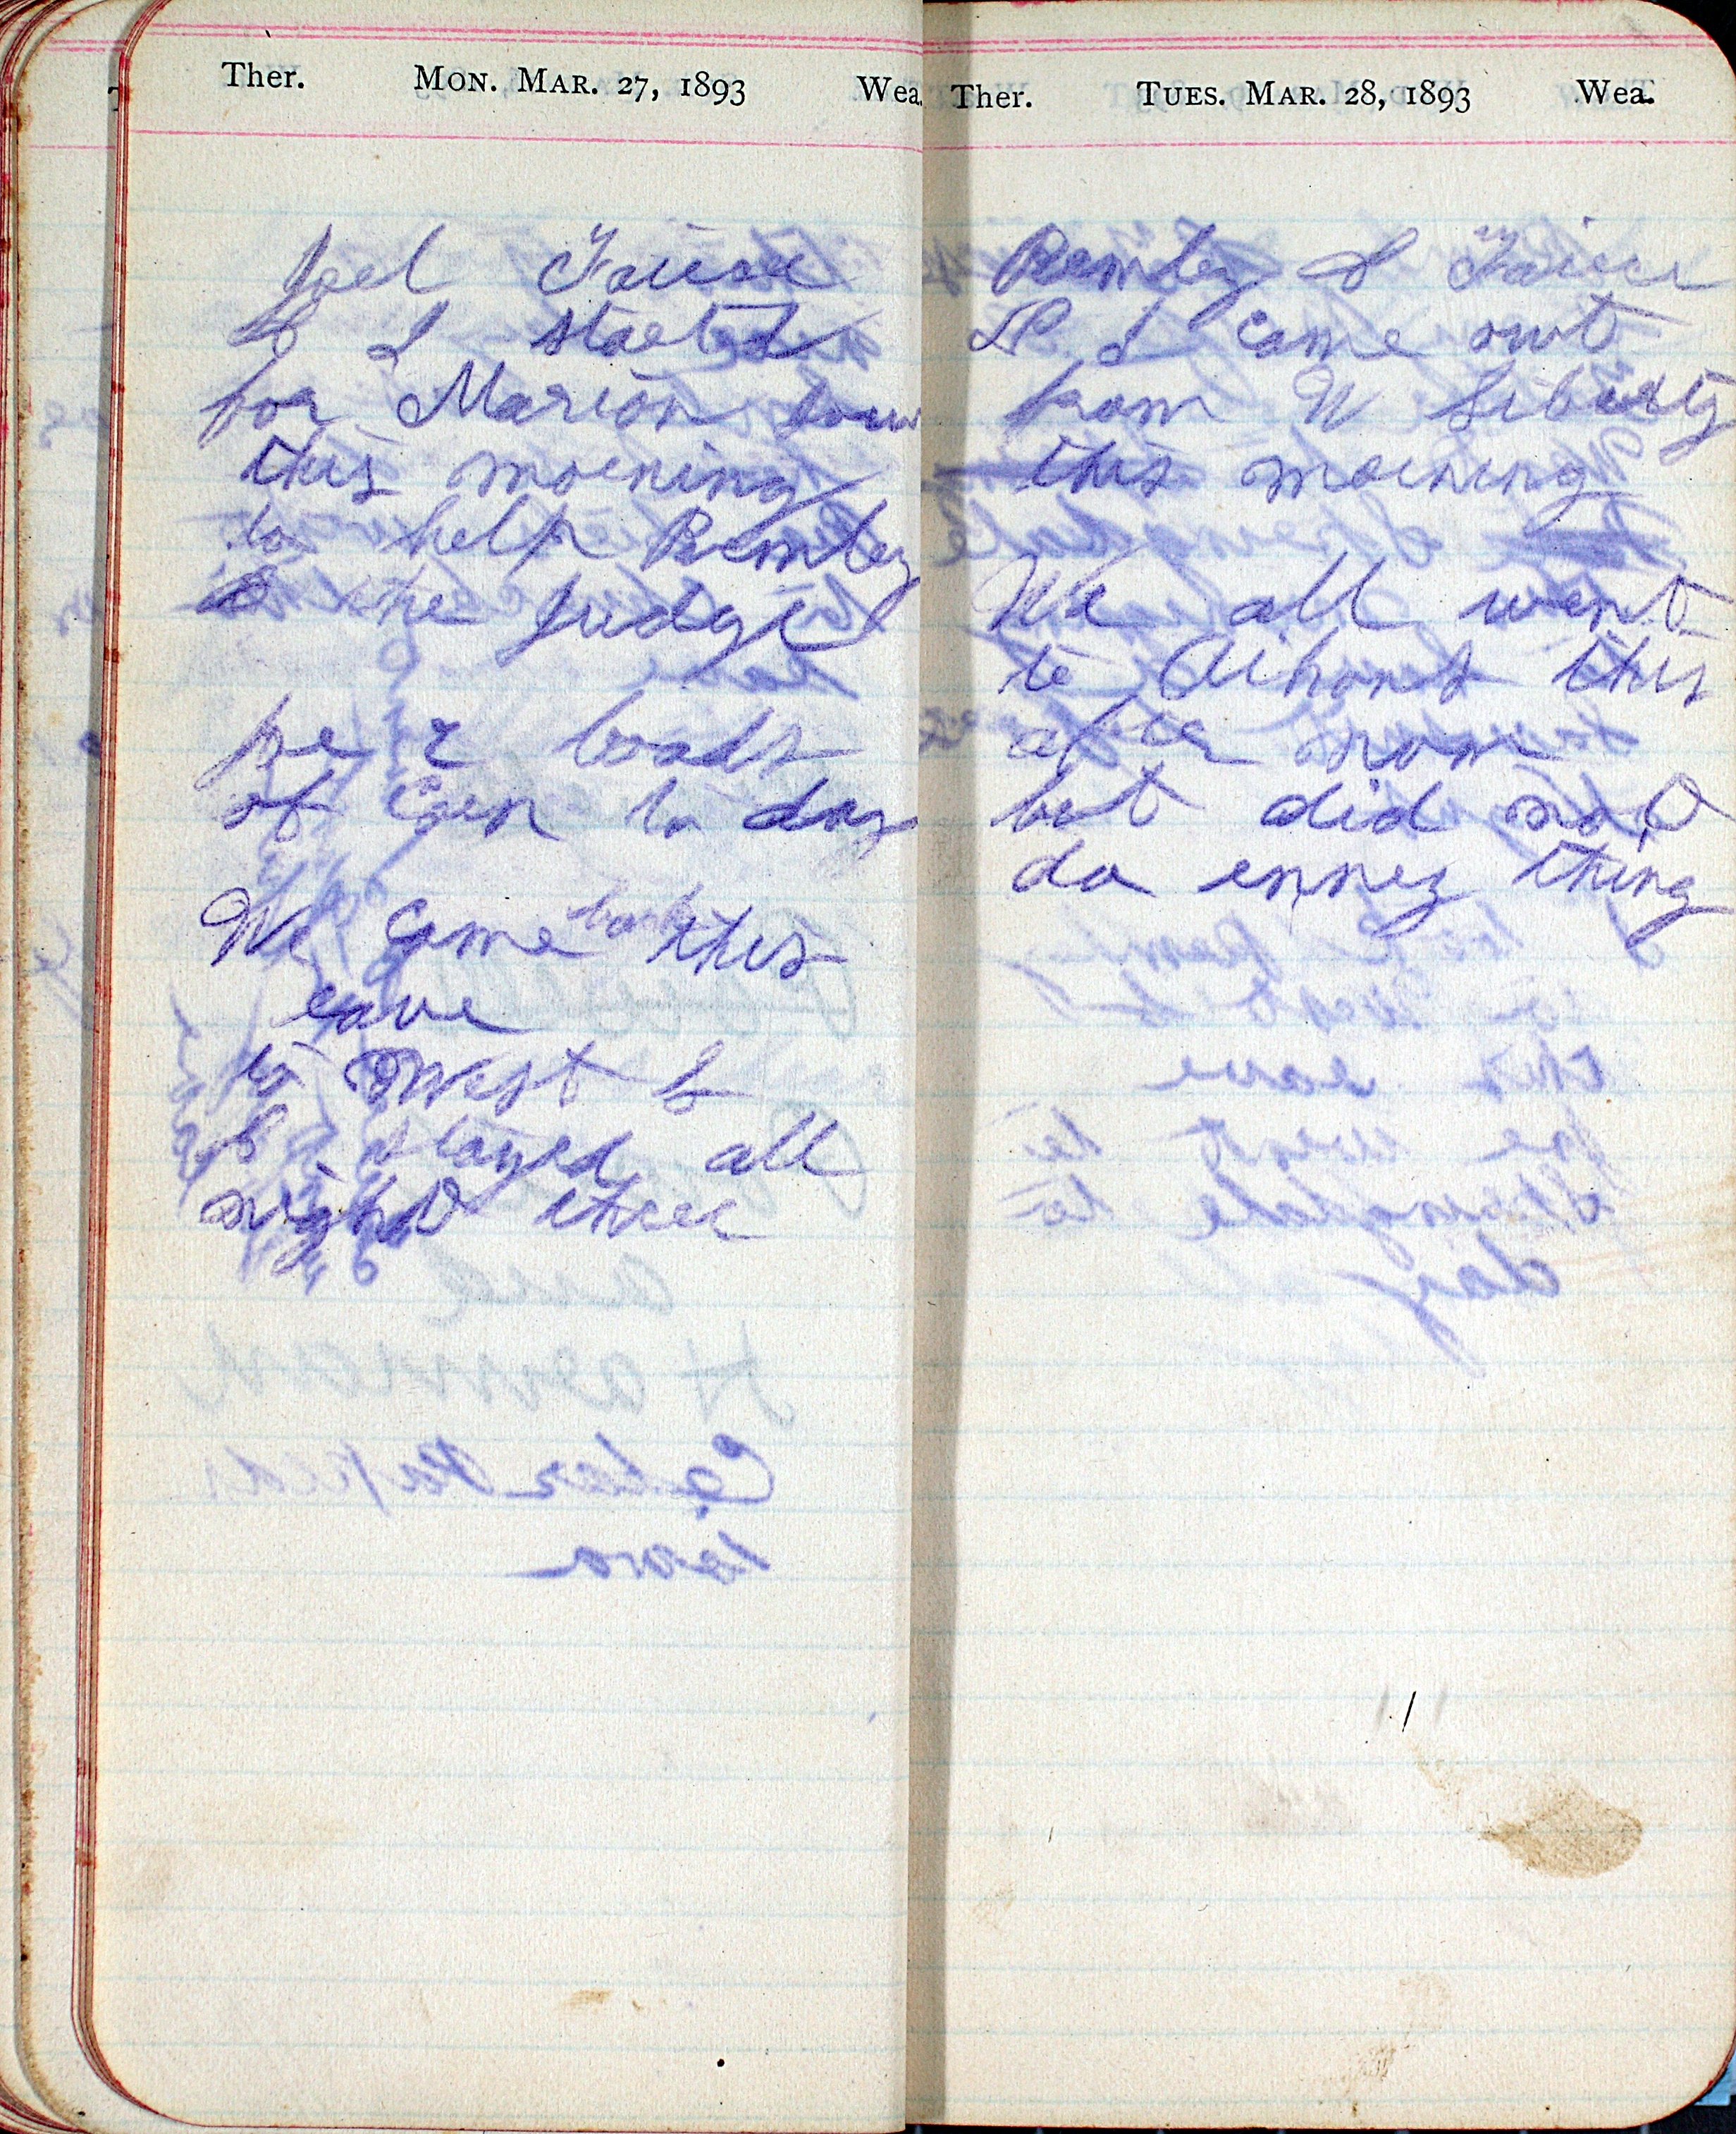 Ther. MON. MAR. 27, 1893 Wea.
Joel
& I started
for Marion
this morning
to help Remley
& the Judge
2 loads
of Corn to day
We Come back this
eave
to West L
& stayed all
night there
Ther. TUES. MAR. 28, 1893 Wea.
Remley &
& I came out
from W Liberty
this morning
We all went
to this
after noon
but did not
do enney thing